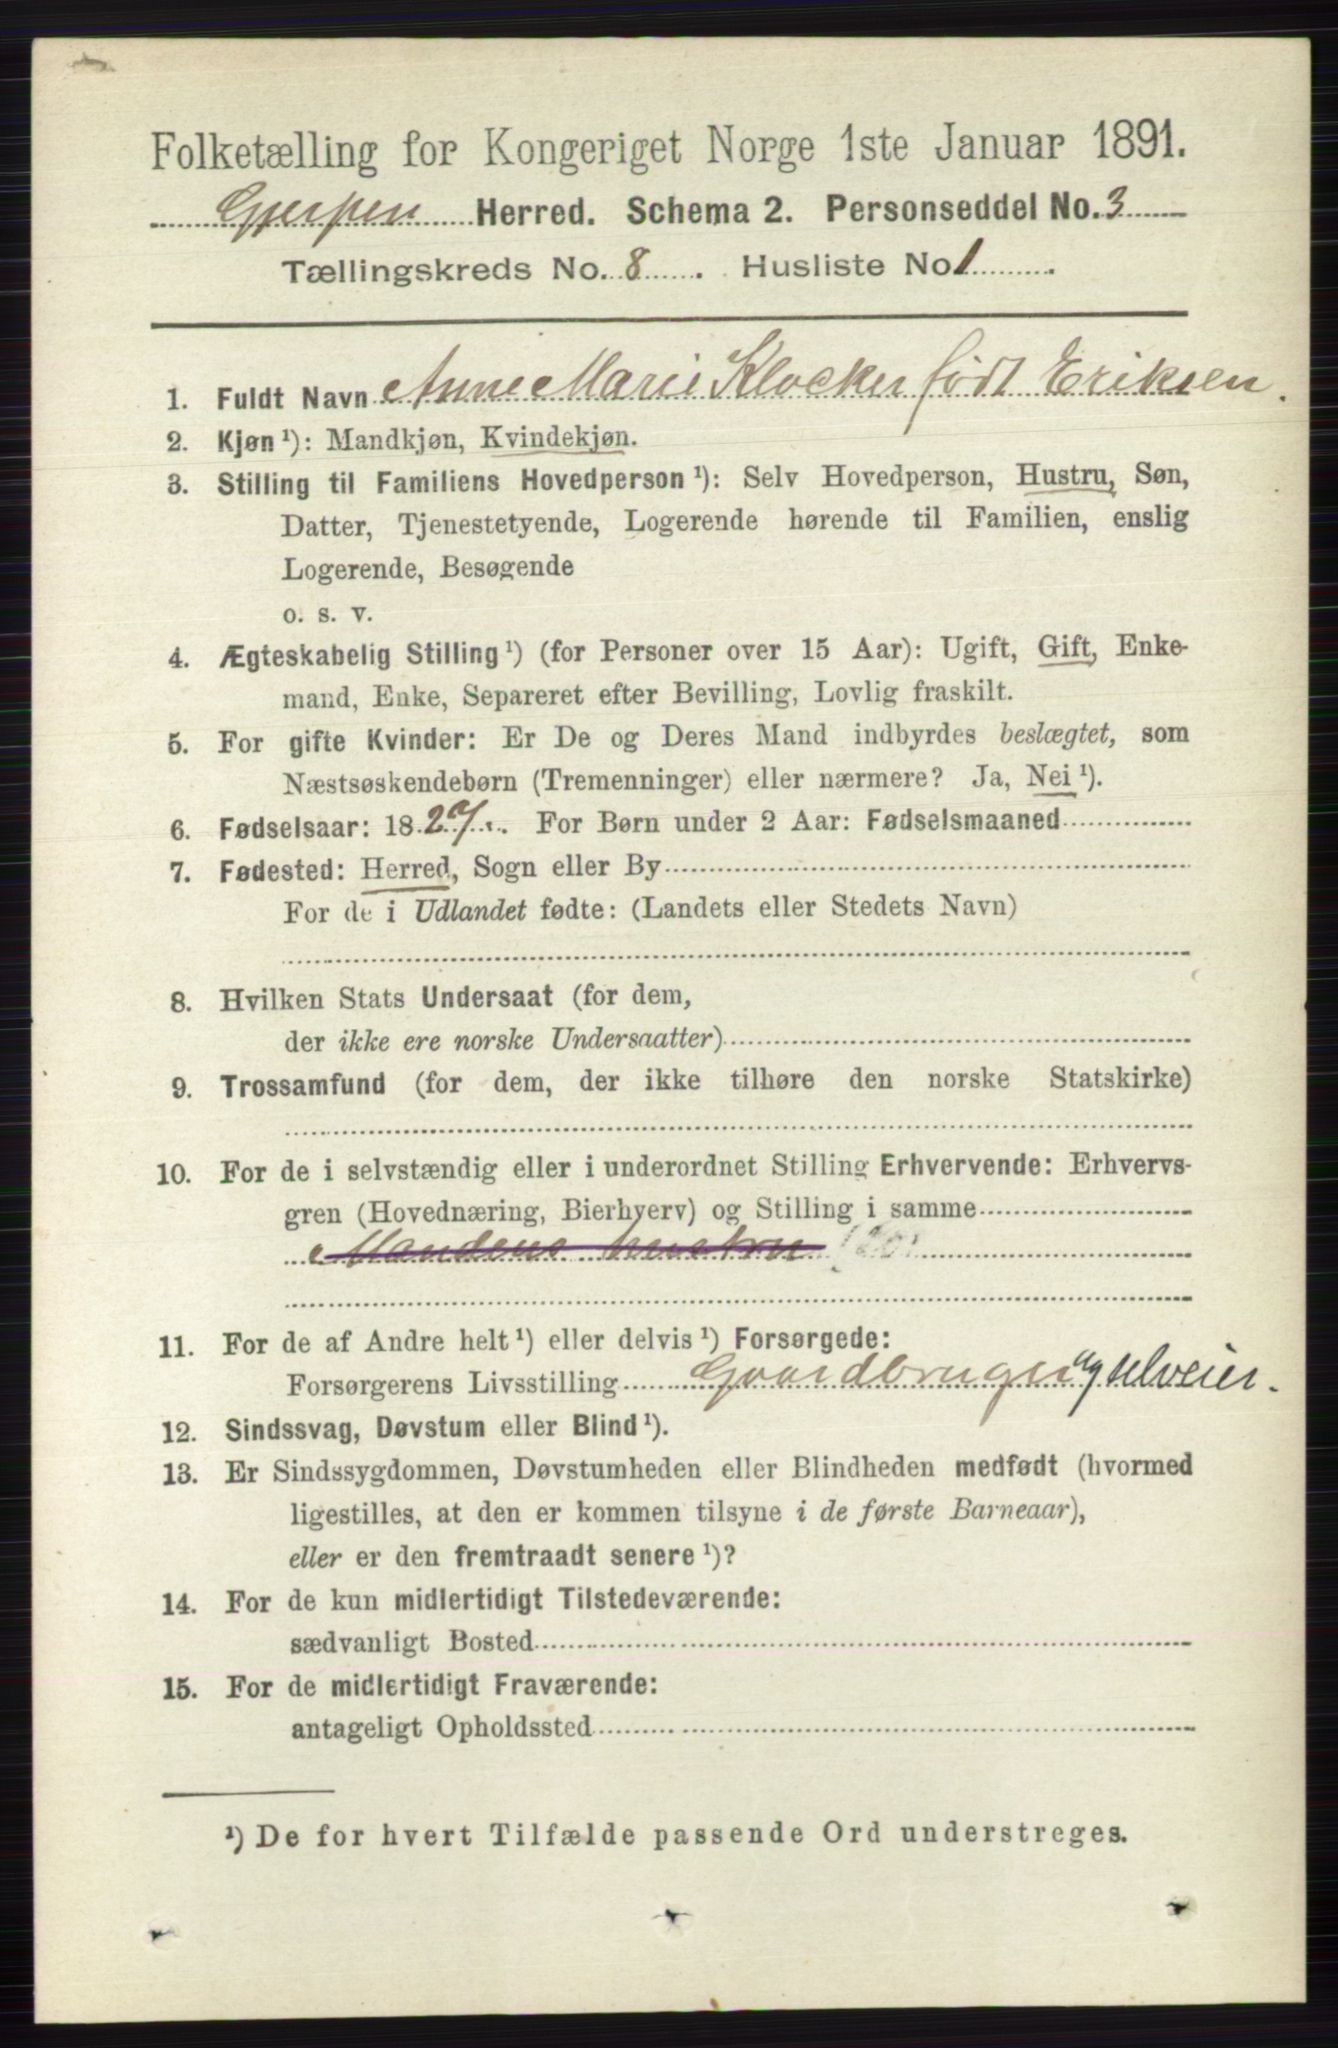 Folketælling for Kongeriget Norge 1ste Januar 1891.
Gjerpen Herred. Schema 2. Personseddel No. 3
Tællingskreds No. 8. Husliste No 1.
1. Fuldt Navn Anne Marie Klocker født Eriksen.
2. Kjøn ¹): Mandkjøn, Kvindekjøn.
3. Stilling til Familiens Hovedperson ¹): Selv Hovedperson, Hustru, Søn,
Datter, Tjenestetyende, Logerende hørende til Familien, enslig
Logerende, Besøgende
o. s. v.
4. Ægteskabelig Stilling ¹) (for Personer over 15 Aar): Ugift, Gift, Enke-
mand, Enke, Separeret efter Bevilling, Lovlig fraskilt.
5. For gifte Kvinder: Er De og Deres Mand indbyrdes beslægtet, som
Næstsøskendebørn (Tremenninger) eller nærmere? Ja, Nei ¹).
6. Fødselsaar: 18 29. For Børn under 2 Aar: Fødselsmaaned
7. Fødested: Herred, Sogn eller By
For de i Udlandet fødte: (Landets eller Stedets Navn)
8. Hvilken Stats Undersaat (for dem,
der ikke ere norske Undersaatter)
9. Trossamfund (for dem, der ikke tilhøre den norske Statskirke)
10. For de i selvstændig eller i underordnet Stilling Erhvervende: Erhvervs-
gren (Hovednæring, Bierhverv) og Stilling i samme
Mandens hustru
11. For de af Andre helt ¹) eller delvis ¹) Forsørgede:
Forsørgerens Livsstilling Gaardbruger og selveier.
12. Sindssvag, Døvstum eller Blind ¹).
13. Er Sindssygdommen, Døvstumheden eller Blindheden medfødt (hvormed
ligestilles, at den er kommen tilsyne i de første Barneaar),
eller er den fremtraadt senere ¹)?
14. For de kun midlertidigt Tilstedeværende:
sædvanligt Bosted
15. For de midlertidigt Fraværende:
antageligt Opholdssted
¹) De for hvert Tilfælde passende Ord understreges.